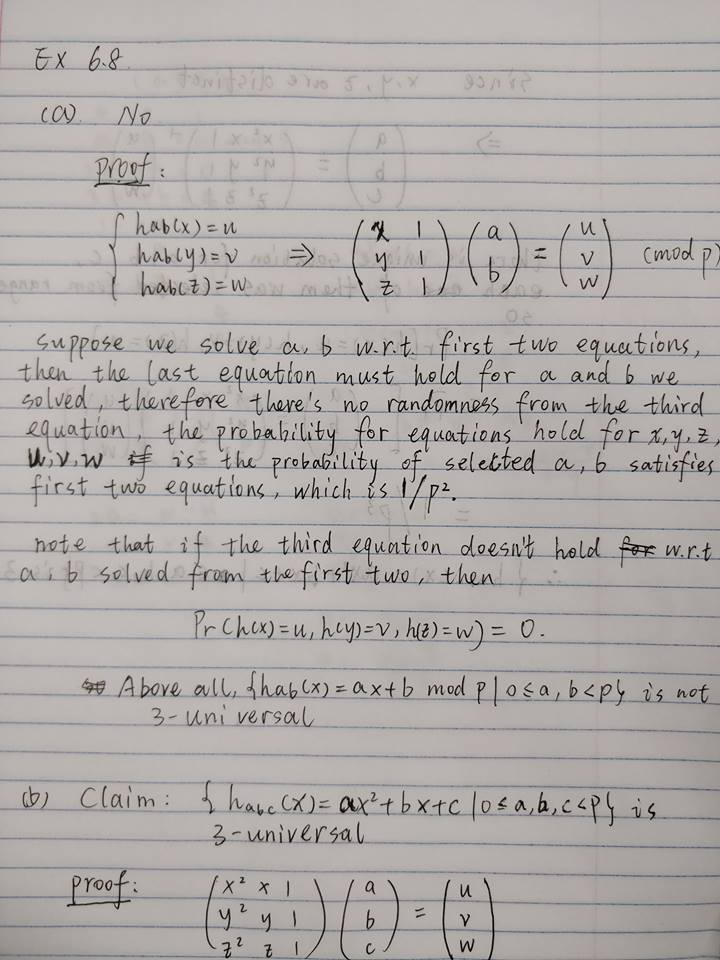 Ex 6.8
(a). No
proof:
{ hab(x)=u
hab(y)=v
hab(z)=w
⇒ (x 1
y 1
z 1) (a
b) = (u
v
w) (mod p)
suppose we solve a, b w.r.t. first two equations,
then the last equation must hold for a and b we
solved, therefore there's no randomness from the third
equation, the probability for equations hold for x,y,z,
u,v,w is the probability of selected a, b satisfies
first two equations, which is 1/p².
note that if the third equation doesn't hold w.r.t
a, b solved from the first two, then
Pr(h(x)=u, h(y)=v, h(z)=w) = 0.
Above all, {hab(x)=ax+b mod p | 0≤a, b<p} is not
3-universal
(b) Claim: { habc(x)= ax²+bx+c | 0≤a,b,c<p} is
3-universal
proof: (x² x 1
y² y 1
z² z 1) (a
b
c) = (u
v
w)